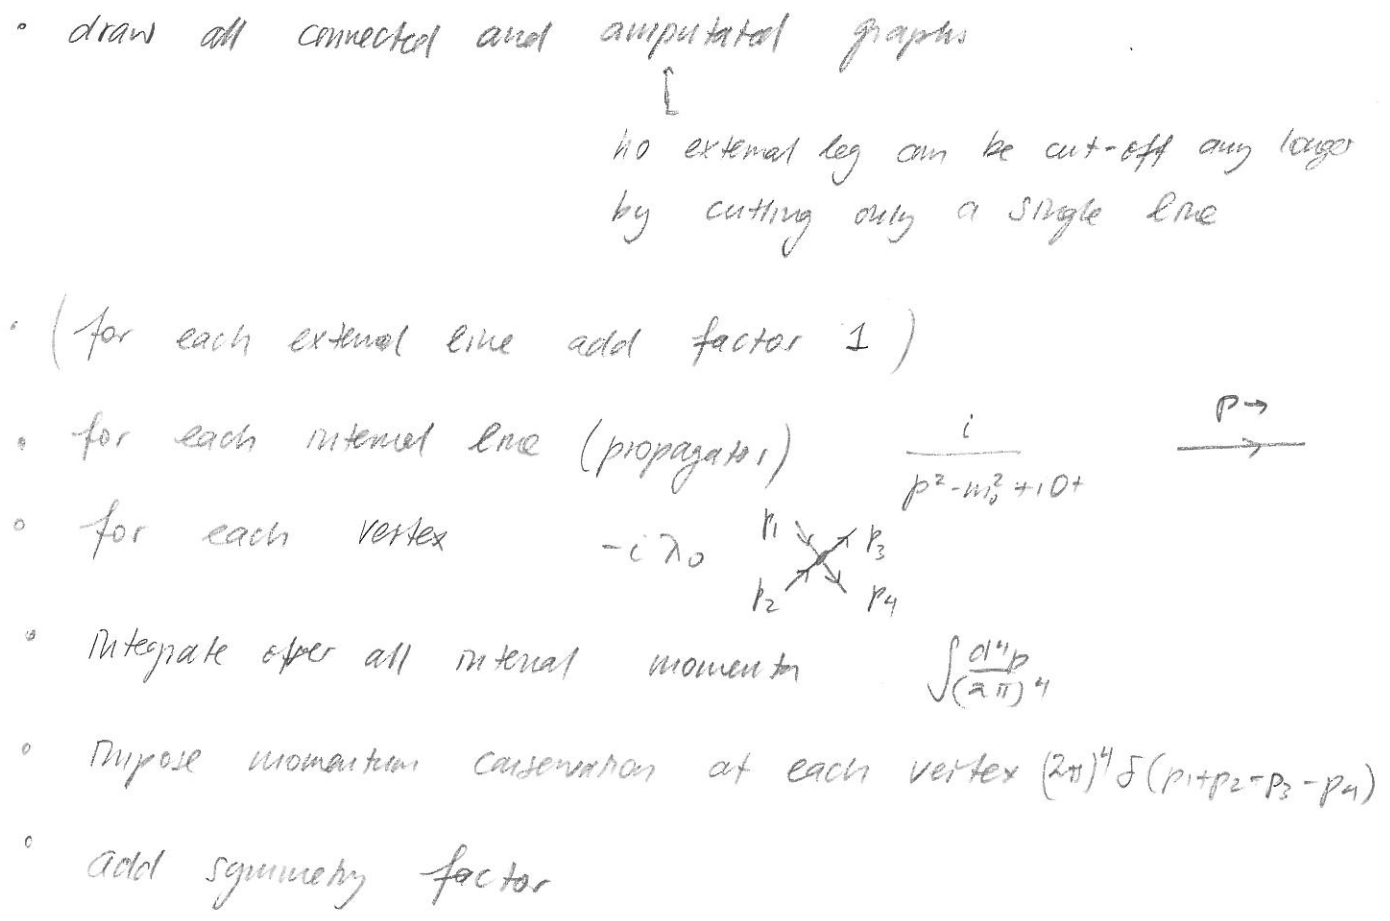 • draw all connected and amputated graphs
no external leg can be cut-off any longer
by cutting only a single line
• (for each external line add factor 1)
• for each internal line (propagator) i / (p² - m₀² + i0+) p→
• for each vertex -iλ₀ p₁ p₂ p₃ p₄
• integrate over all internal momenta ∫ d⁴p / (2π)⁴
• impose momentum conservation at each vertex (2π)⁴ δ(p₁+p₂-p₃-p₄)
• add symmetry factor